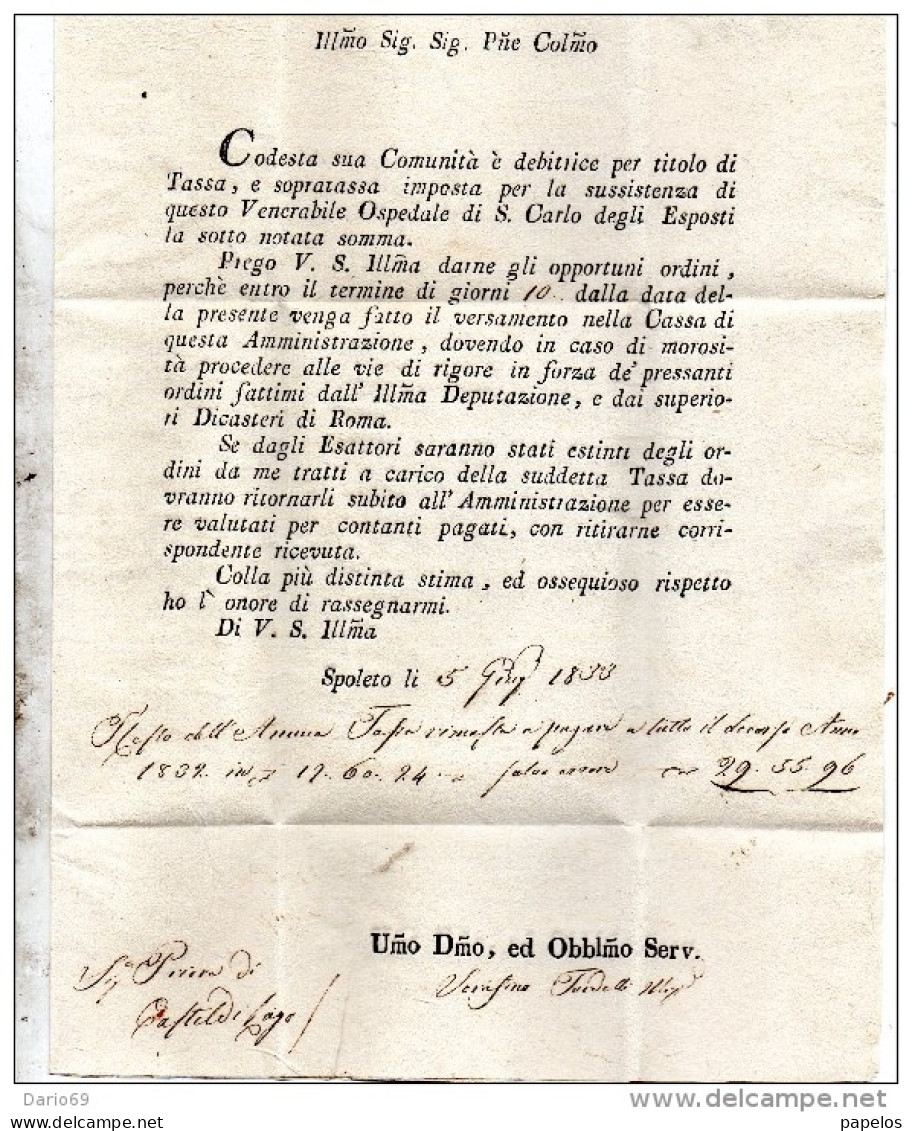 Illm̃o Sig. Sig. Pñe Colm̃o
Codesta sua Comunità è debitrice per titolo di
Tassa, e sopratassa imposta per la sussistenza di
questo Venerabile Ospedale di S. Carlo degli Esposti
la sotto notata somma.
Prego V. S. Illm̃a darne gli opportuni ordini,
perchè entro il termine di giorni 10 dalla data del-
la presente venga fatto il versamento nella Cassa di
questa Amministrazione, dovendo in caso di morosi-
tà procedere alle vie di rigore in forza de' pressanti
ordini fattimi dall' Illm̃a Deputazione, e dai superio-
ri Dicasteri di Roma.
Se dagli Esattori saranno stati estinti degli or-
dini da me tratti a carico della suddetta Tassa do-
vranno ritornarli subito all' Amministrazione per esse-
re valutati per contanti pagati, con ritirarne corri-
spondente ricevuta.
Colla più distinta stima, ed ossequioso rispetto
ho l' onore di rassegnarmi.
Di V. S. Illm̃a
Spoleto li 5 Giug 1833
Resto dell' Annua Tassa rimasta a pagare a tutto il decorso Anno
1832. in 17. 60. 24 salvo errore 29. 55. 96
Um̃o Dm̃o, ed Obblm̃o Serv.
Serafino
Sig Priore di
Castel di Lago
Dario69
delcampe.net
papelos